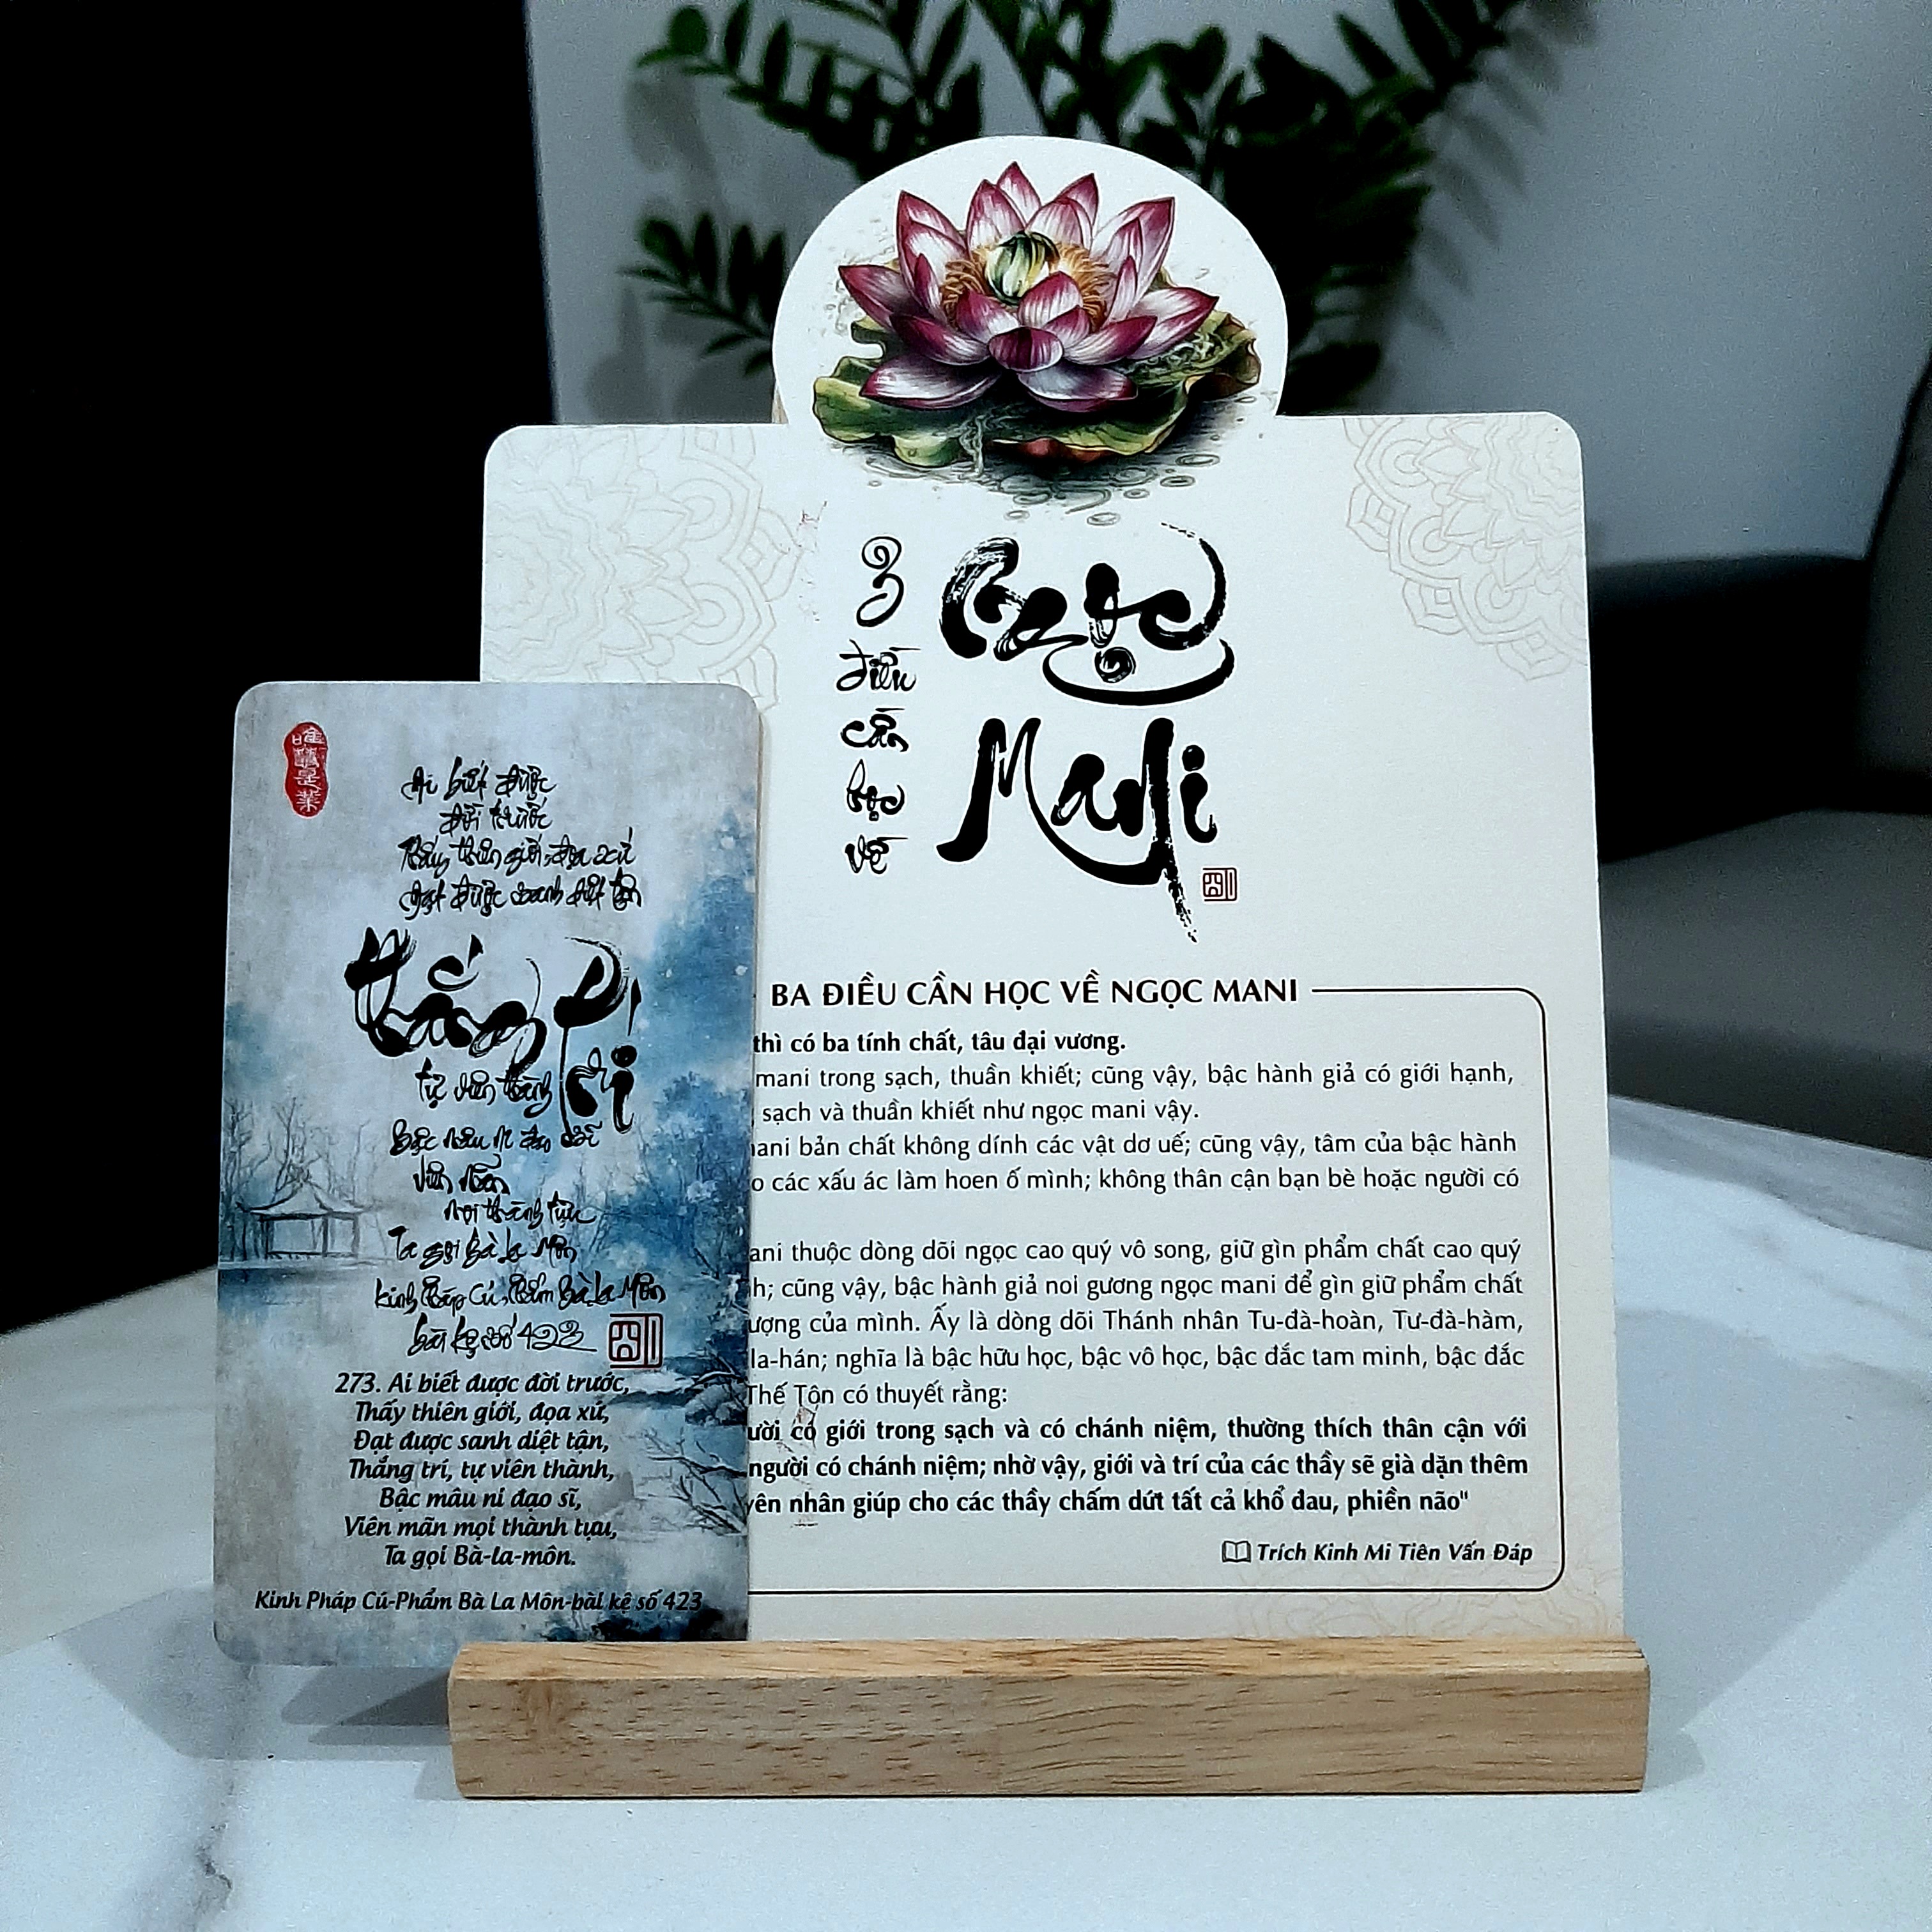 Ai biết được
đời trước
Thấy thiên giới, đọa xứ
Đạt được sanh diệt tận
thắng trí
tự viên thành
Bậc mâu ni đạo sĩ
viên mãn
mọi thành tựu
Ta gọi Bà la Môn
Kinh Pháp Cú, Phẩm Bà La Môn
bài kệ số 423
273. Ai biết được đời trước,
Thấy thiên giới, đọa xứ,
Đạt được sanh diệt tận,
Thắng trí, tự viên thành,
Bậc mâu ni đạo sĩ,
Viên mãn mọi thành tựu,
Ta gọi Bà-la-môn.
Kinh Pháp Cú-Phẩm Bà La Môn-bài kệ số 423
3
điều
cần
học
về
Ngọc
Mani
BA ĐIỀU CẦN HỌC VỀ NGỌC MANI
thì có ba tính chất, tâu đại vương.
mani trong sạch, thuần khiết; cũng vậy, bậc hành giả có giới hạnh,
sạch và thuần khiết như ngọc mani vậy.
bản chất không dính các vật dơ uế; cũng vậy, tâm của bậc hành
các xấu ác làm hoen ố mình; không thân cận bạn bè hoặc người có
thuộc dòng dõi ngọc cao quý vô song, giữ gìn phẩm chất cao quý
cũng vậy, bậc hành giả noi gương ngọc mani để gìn giữ phẩm chất
của mình. Ấy là dòng dõi Thánh nhân Tu-đà-hoàn, Tư-đà-hàm,
la-hán; nghĩa là bậc hữu học, bậc vô học, bậc đắc tam minh, bậc đắc
Thế Tôn có thuyết rằng:
có giới trong sạch và có chánh niệm, thường thích thân cận với
người có chánh niệm; nhờ vậy, giới và trí của các thầy sẽ già dặn thêm
nhân giúp cho các thầy chấm dứt tất cả khổ đau, phiền não"
Trích Kinh Mi Tiên Vấn Đáp